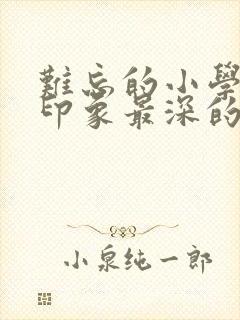 難忘的小學
印象最深的
小泉纯一郎